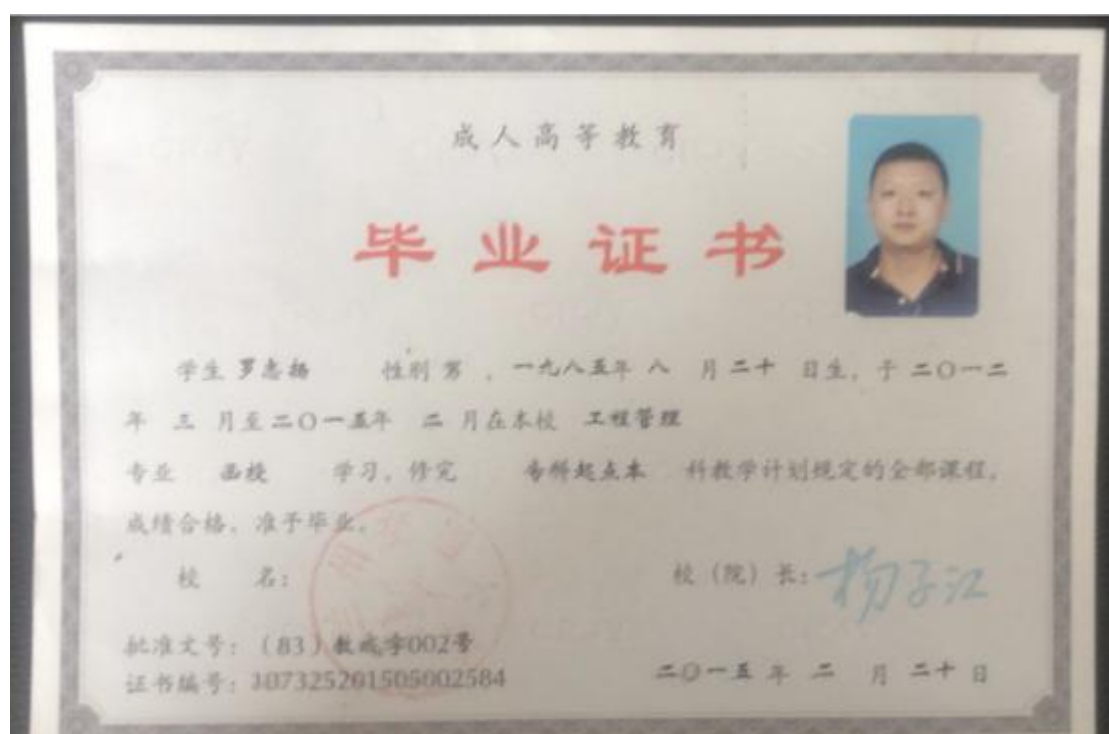 成人高等教育
毕业证书
学生 罗志杨 性别 男 ，一九八五年 八 月 二十 日生，于 二〇一二
年 三 月至 二〇一五年 二 月在本校 工程管理
专业 函授 学习，修完 专科起点本 科教学计划规定的全部课程，
成绩合格，准予毕业。
校 名：
校（院）长：杨子江
批准文号：（83）教成字002号
证书编号：107325201505002584
二〇一五 年 二 月 二十 日